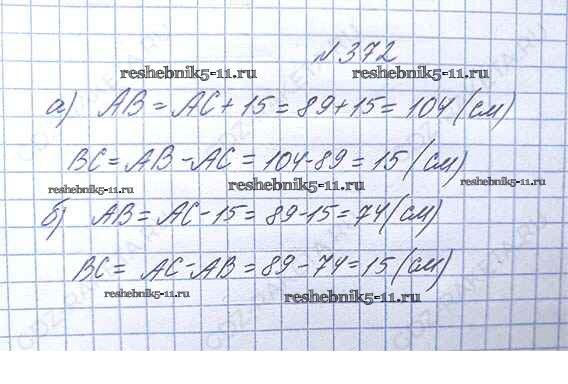 №372
reshebnik5-11.ru reshebnik5-11.ru
а) AB = AC + 15 = 89 + 15 = 104 (см)
BC = AB - AC = 104 - 89 = 15 (см)
reshebnik5-11.ru reshebnik5-11.ru reshebnik5-11.ru
б) AB = AC - 15 = 89 - 15 = 74 (см)
BC = AC - AB = 89 - 74 = 15 (см)
reshebnik5-11.ru reshebnik5-11.ru